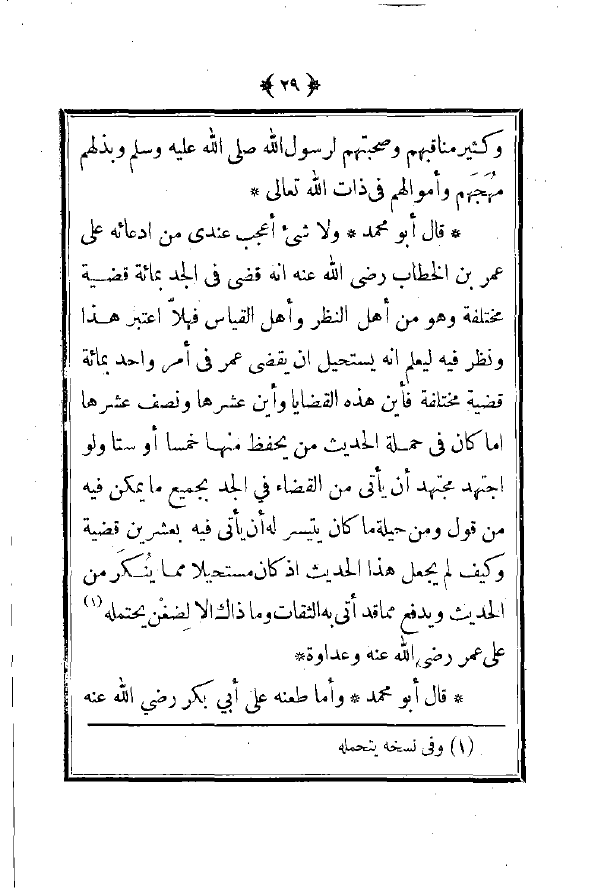 ﴿ ٢٩ ﴾
وكثير مناقبهم وصحبتهم لرسول الله صلى الله عليه وسلم وبذلهم
مُهَجَهم وأموالهم فى ذات الله تعالى *
* قال أبو محمد * ولا شئ أعجب عندى من ادعائه على
عمر بن الخطاب رضى الله عنه انه قضى فى الجد بمائة قضية
مختلفة وهو من أهل النظر وأهل القياس فهلاّ اعتبر هذا
ونظر فيه ليعلم انه يستحيل ان يقضى عمر فى أمر واحد بمائة
قضية مختلفة فأين هذه القضايا وأين عشرها ونصف عشرها
اما كان فى حملة الحديث من يحفظ منها خمسا أو ستا ولو
اجتهد مجتهد أن يأتى من القضاء في الجد بجميع ما يمكن فيه
من قول ومن حيلة ما كان يتيسر له أن يأتى فيه بعشرين قضية
وكيف لم يجعل هذا الحديث اذ كان مستحيلا مما يُنكَر من
الحديث ويدفع مما قد أتى به الثقات وما ذاك الا لِضغْن يحتمله (١)
على عمر رضى الله عنه وعداوة *
* قال أبو محمد * وأما طعنه على أبي بكر رضي الله عنه
(١) وفى نسخه يتحمله